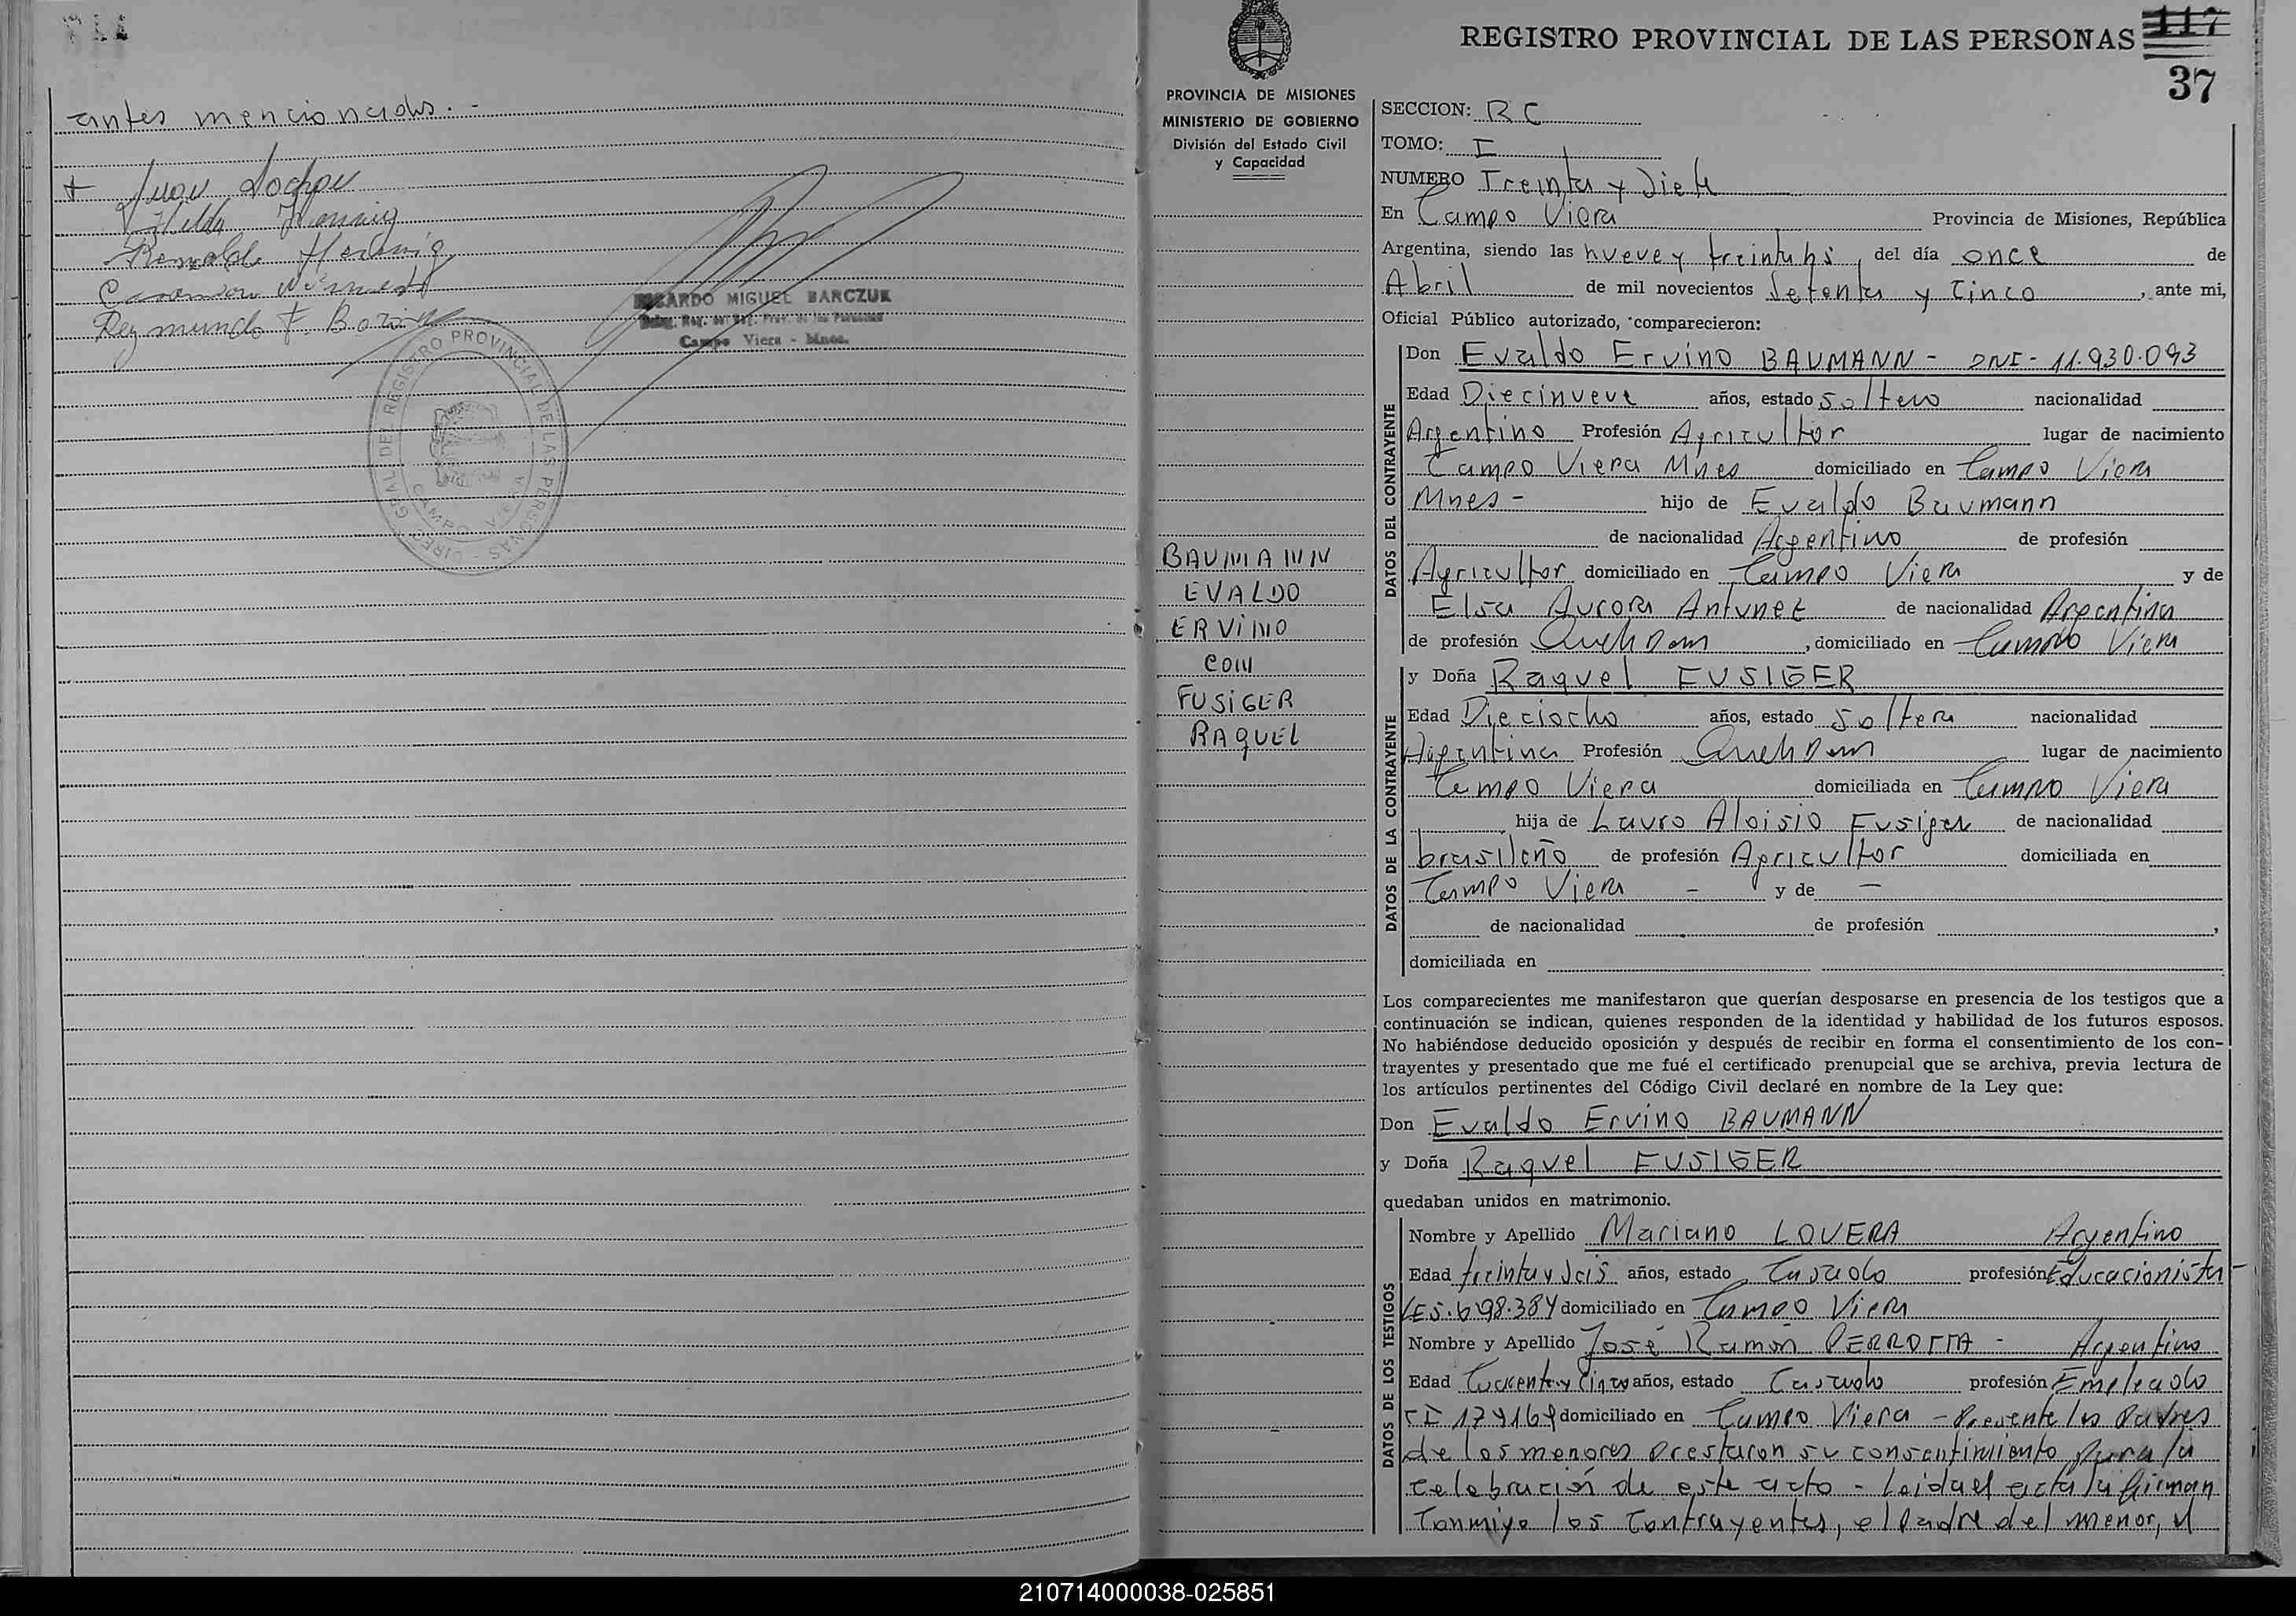 antes mencionados. -
Hilda Hennig
Reymundo F.
RICARDO MIGUEL BARCZUK
Deleg. Reg. del Reg. Prov. de las Personas
Campo Viera - Mnes.
GRAL DEL REGISTRO PROVINCIAL DE LAS PERSONAS - DIREC.
CAMPO VIERA
REGISTRO PROVINCIAL DE LAS PERSONAS
117
37
PROVINCIA DE MISIONES
MINISTERIO DE GOBIERNO
División del Estado Civil
y Capacidad
BAUMANN
EVALDO
ERVINO
CON
FUSIGER
RAQUEL
SECCION: RC
TOMO: I
NUMERO Treinta y Siete
En Campo Viera Provincia de Misiones, República
Argentina, siendo las nueve y treinta hs, del día once de
Abril de mil novecientos Setenta y Cinco, ante mi,
Oficial Público autorizado, comparecieron:
DATOS DEL CONTRAYENTE
Don Evaldo Ervino BAUMANN - DNI - 11.930.093
Edad Diecinueve años, estado soltero nacionalidad
Argentino Profesión Agricultor lugar de nacimiento
Campo Viera Mnes domiciliado en Campo Viera
Mnes - hijo de Evaldo Baumann
de nacionalidad Argentino de profesión
Agricultor domiciliado en Campo Viera y de
Elsa Aurora Antunez de nacionalidad Argentina
de profesión Queh Dom, domiciliado en Campo Viera
DATOS DE LA CONTRAYENTE
y Doña Raquel FUSIGER
Edad Dieciocho años, estado soltera nacionalidad
Argentina Profesión Queh Dom lugar de nacimiento
Campo Viera domiciliada en Campo Viera
hija de Lauro Aloisio Fusiger de nacionalidad
brasileño de profesión Agricultor domiciliada en
Campo Viera - y de -
de nacionalidad de profesión ,
domiciliada en
Los comparecientes me manifestaron que querían desposarse en presencia de los testigos que a
continuación se indican, quienes responden de la identidad y habilidad de los futuros esposos.
No habiéndose deducido oposición y después de recibir en forma el consentimiento de los con-
trayentes y presentado que me fué el certificado prenupcial que se archiva, previa lectura de
los artículos pertinentes del Código Civil declaré en nombre de la Ley que:
Don Evaldo Ervino BAUMANN
y Doña Raquel FUSIGER
quedaban unidos en matrimonio.
DATOS DE LOS TESTIGOS
Nombre y Apellido Mariano LOVERA Argentino
Edad treinta y Seis años, estado Casado profesión Educacionista -
LE 5.698.384 domiciliado en Campo Viera
Nombre y Apellido José Ramón PERROTTA - Argentino
Edad Cuarenta y Cinco años, estado Casado profesión Empleado
CI 179169 domiciliado en Campo Viera - Presente los Padres
de los menores prestaron su consentimiento para la
celebración de este acto - Leida el acta la firman
Conmigo los Contrayentes, el Padre del menor, el
210714000038-025851